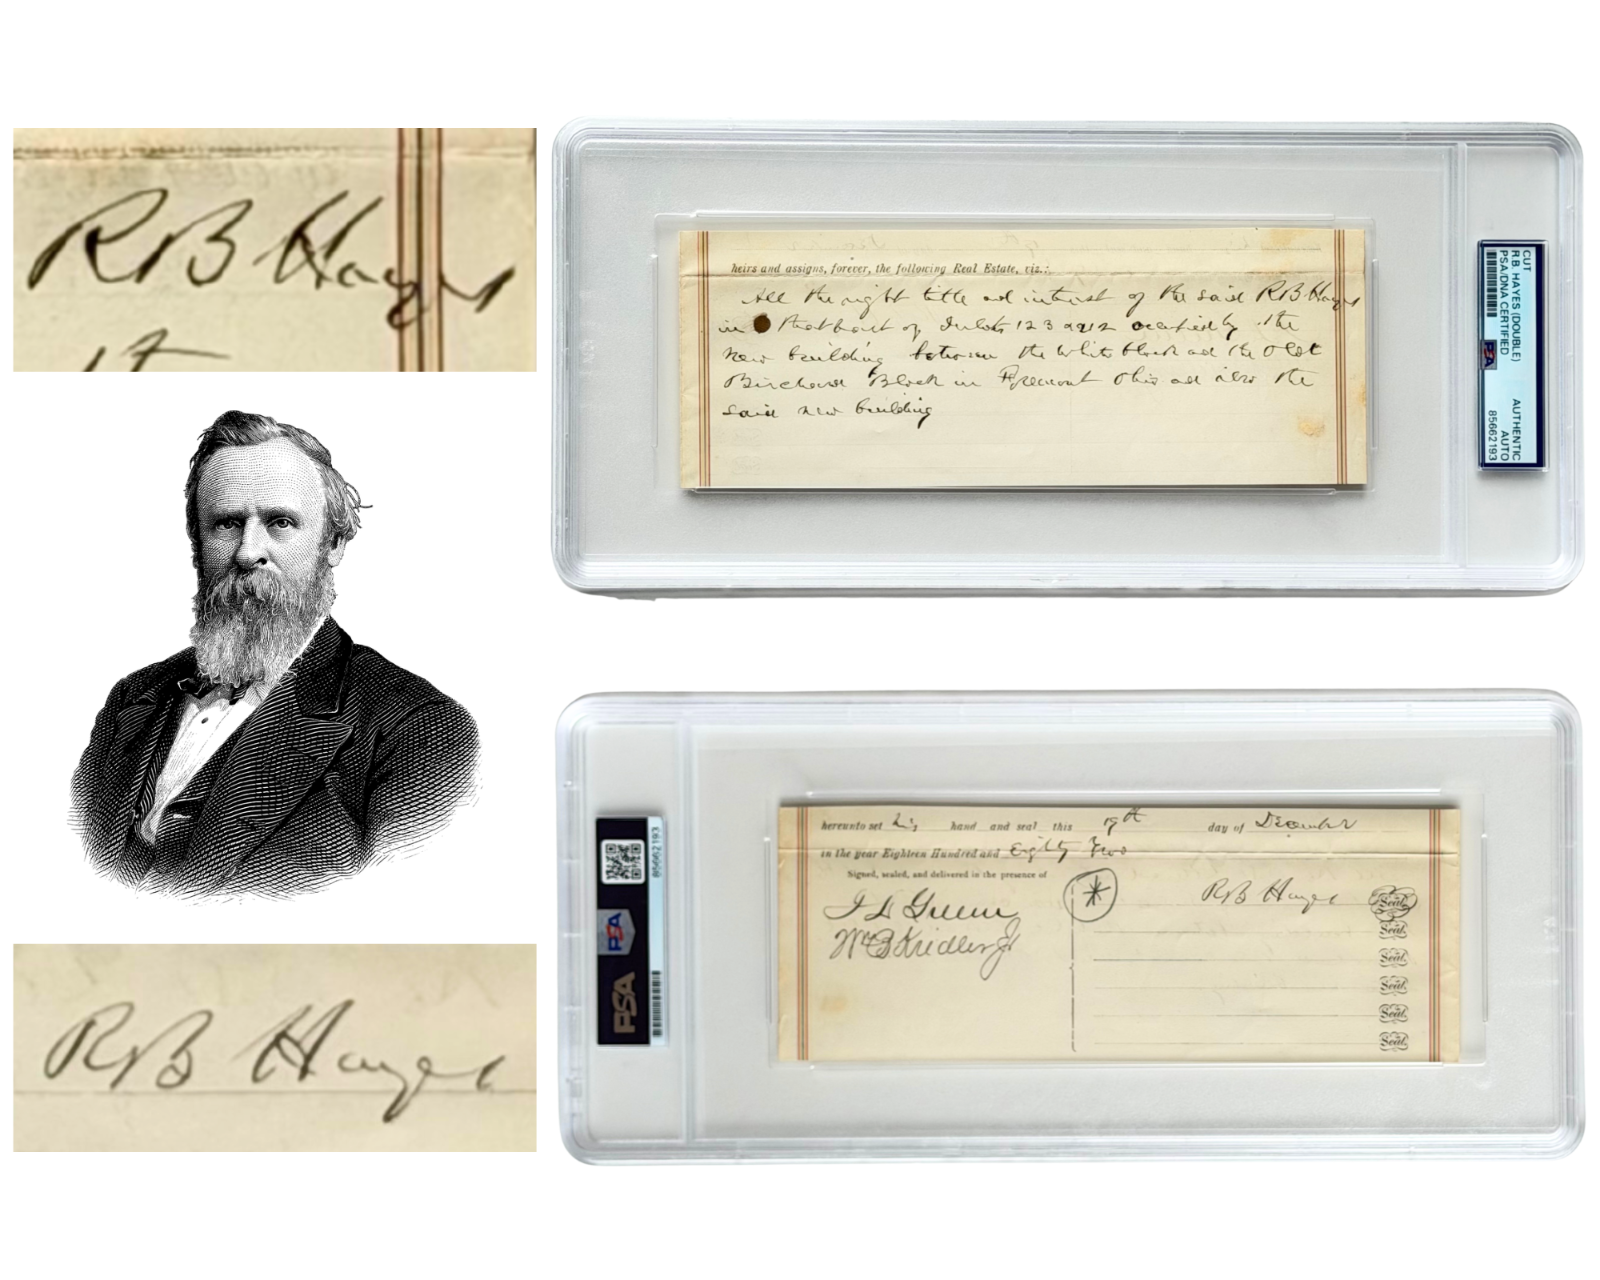 R B Hayes
heirs and assigns, forever, the following Real Estate, viz.:
All the right title and interest of the said R B Hayes
in that part of Inlots 123 and 12 occupied by the
new building between the White block and the Old
Birchard Block in Fremont Ohio and also the
said new building
CUT
R.B. HAYES (DOUBLE)
PSA/DNA CERTIFIED
AUTHENTIC
AUTO
85662193
PSA
R B Hayes
85662193
PSA
PSA
hereunto set his hand and seal this 19th day of December
in the year Eighteen Hundred and Eighty Two
Signed, sealed, and delivered in the presence of
R B Hayes Seal.
Seal.
Seal.
Seal.
Seal.
Seal.
Wm B Kridler Jr